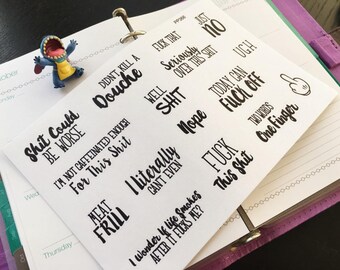 DIDN'T KILL A
Douche
FUCK THAT
JUST
NO
Seriously
OVER THIS SHIT
UGH
Shit Could
BE WORSE
WELL
SHIT
TODAY CAN
FUCK OFF
I'M NOT CAFFEINATED ENOUGH
For This Shit
Nope
TWO WORDS
One Finger
I literally
CAN'T EVEN
FUCK
This Shit
MEAT
FRILL
I Wonder If life Smokes
AFTER IT FUCKS ME?
Wednesday
Thursday